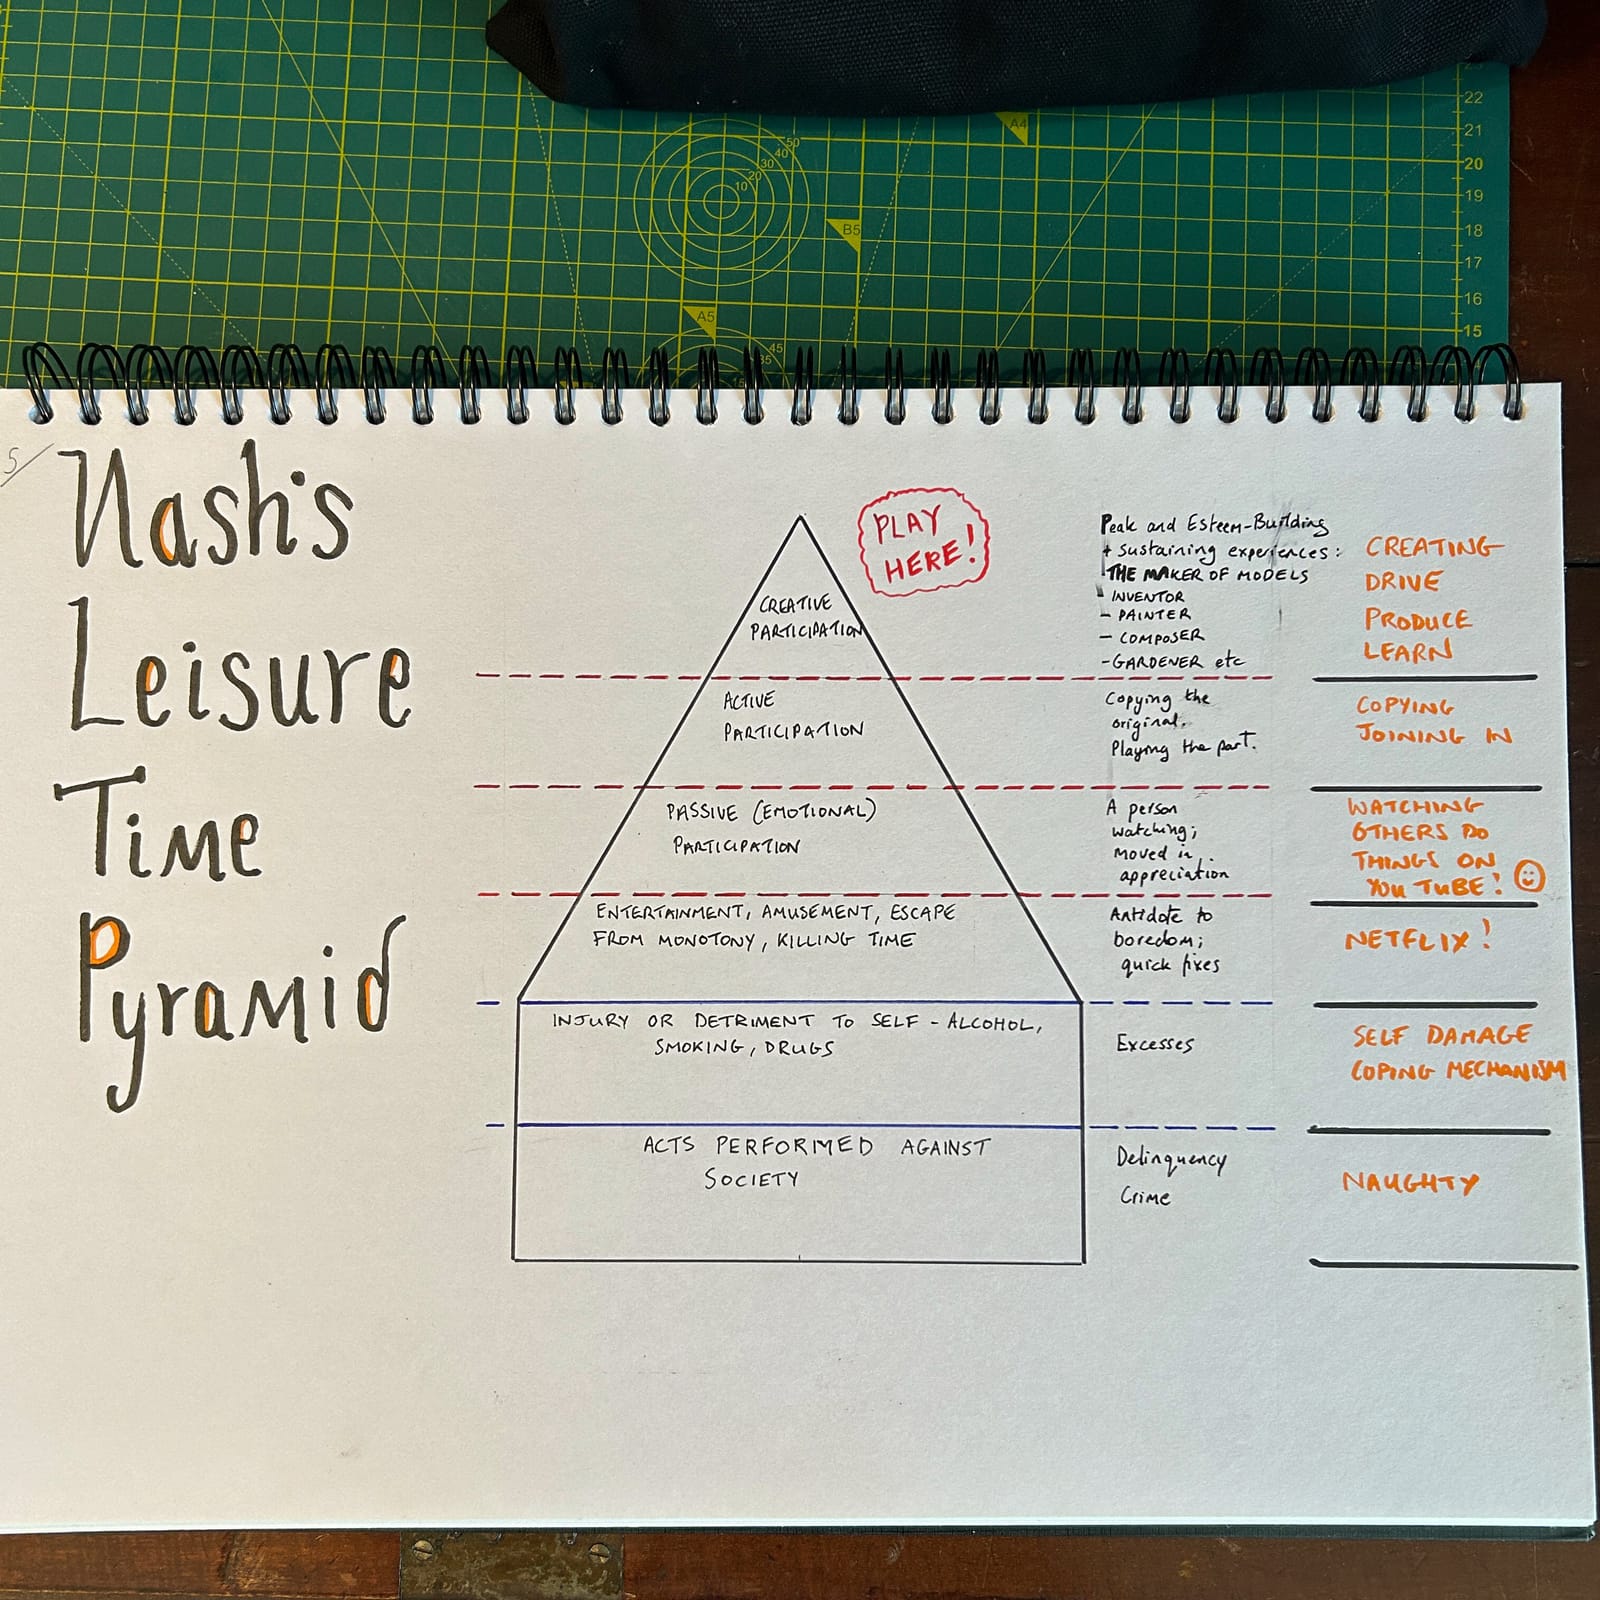 22
21
20
19
18
17
16
15
A4
B5
A5
50
40
30
20
10
45
35
15
5/
Nash's
Leisure
Time
Pyramid
PLAY
HERE!
CREATIVE
PARTICIPATION
Peak and Esteem-Building
+ sustaining experiences:
THE MAKER OF MODELS
- INVENTOR
- PAINTER
- COMPOSER
- GARDENER etc
CREATING
DRIVE
PRODUCE
LEARN
ACTIVE
PARTICIPATION
Copying the
original.
Playing the part.
COPYING
JOINING IN
PASSIVE (EMOTIONAL)
PARTICIPATION
A person
watching;
moved in
appreciation
WATCHING
OTHERS DO
THINGS ON
YOU TUBE!
ENTERTAINMENT, AMUSEMENT, ESCAPE
FROM MONOTONY, KILLING TIME
Antidote to
boredom;
quick fixes
NETFLIX!
INJURY OR DETRIMENT TO SELF - ALCOHOL,
SMOKING, DRUGS
Excesses
SELF DAMAGE
COPING MECHANISM
ACTS PERFORMED AGAINST
SOCIETY
Delinquency
Crime
NAUGHTY